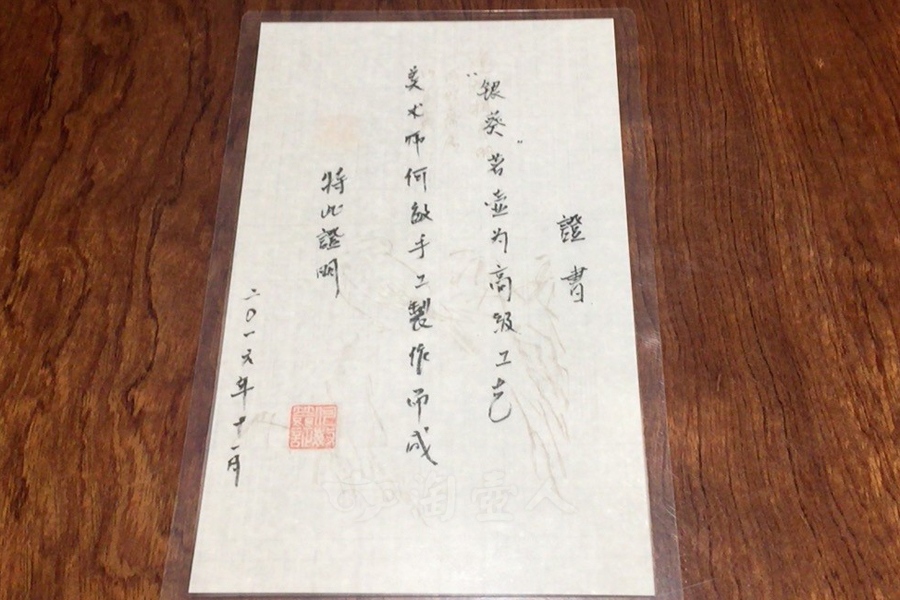 證書
"银葵"茗壶为高级工艺
美术师何敏手工製作而成
特此證明
二〇一六年十一月
淘壶人